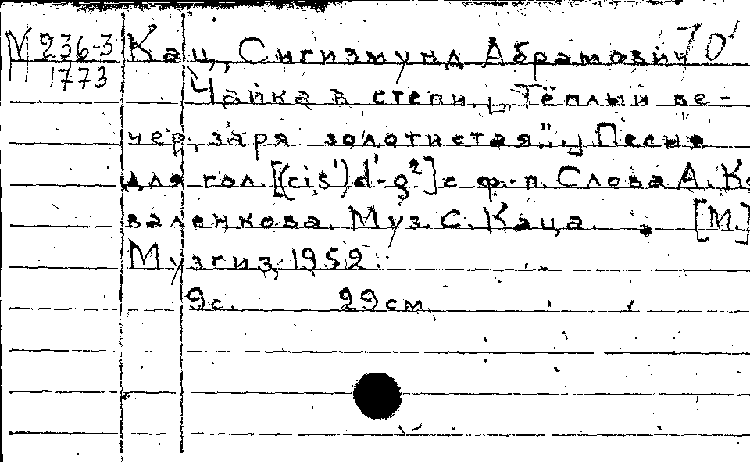 М 236-3 Кац, Сигизмунд Абрамович 70'
1773
Чайка в степи. [„Тёплый ве-
чер, заря золотистая“...] Песня
для гол. [(cis')d'-g²] с ф.-п. Слова А. Ко
валенкова. Муз. С. Каца. [М.]
Музгиз, 1952.
9с. 29см